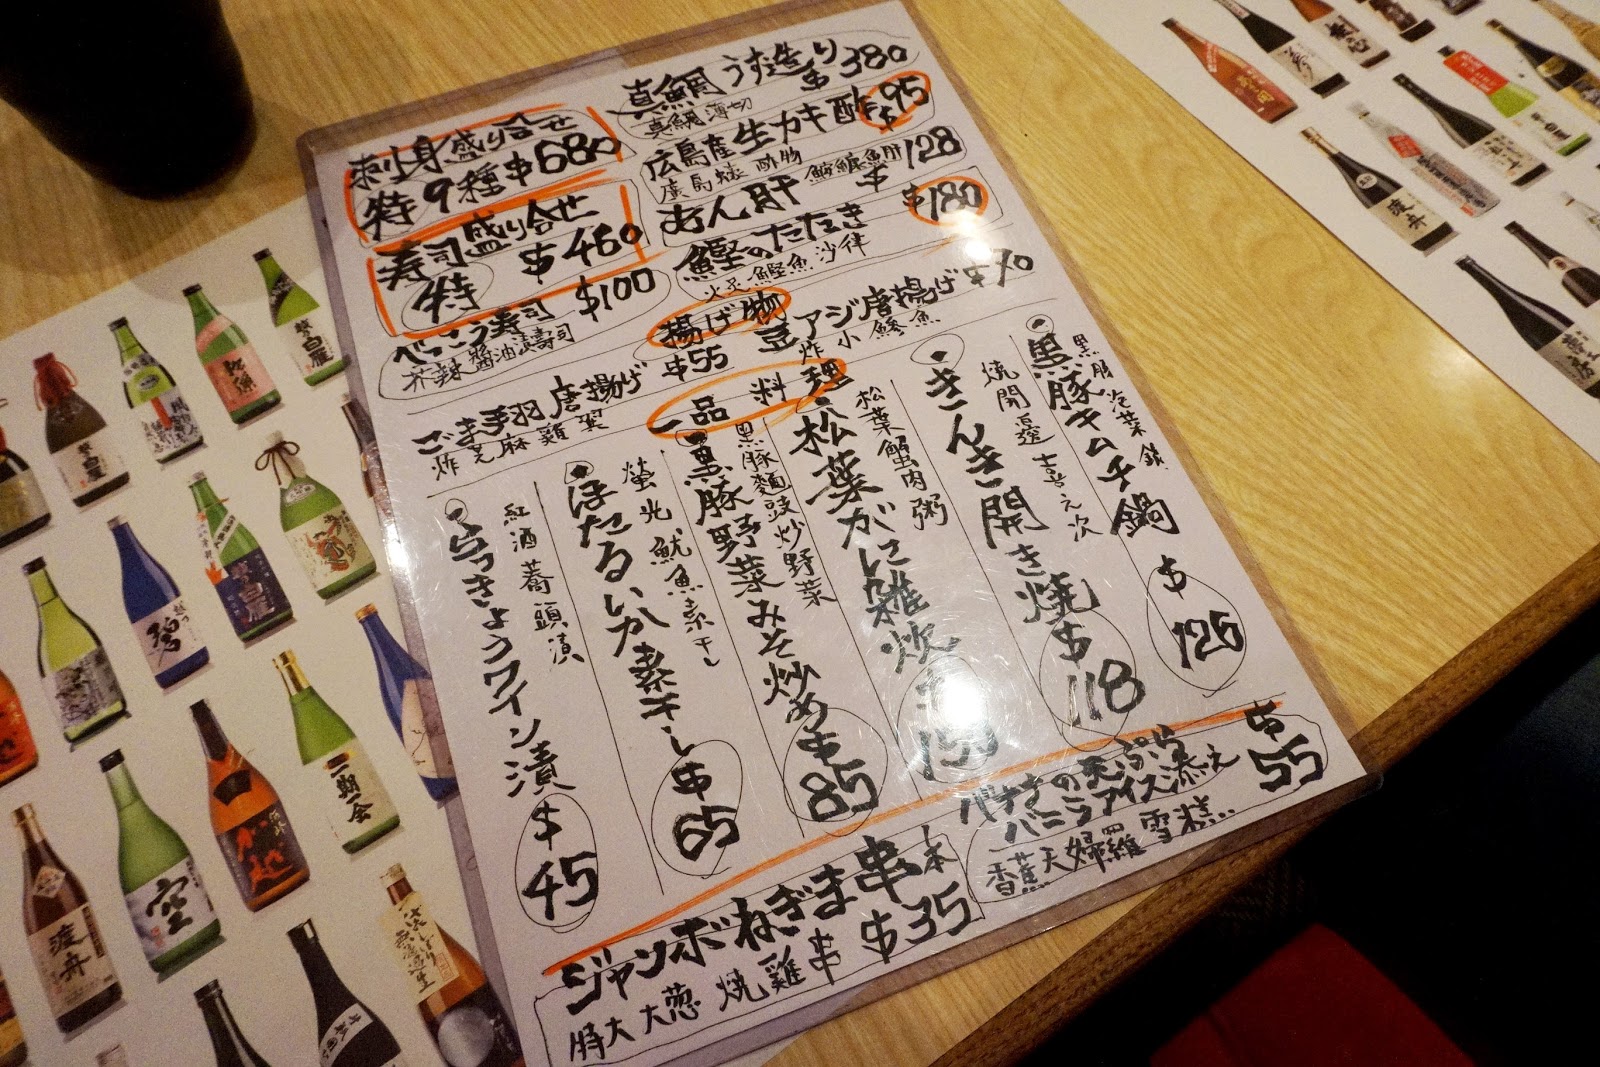 刺身盛り合せ
特 9種 $680
寿司盛り合せ
特 $460
べっこう寿司 $100
芥辣醬油漬壽司
真鯛うす造り $380
真鯛薄切
広島産生カキ酢 $95
廣島蠔酢物
あん肝 $128
鮟鱇魚肝
鰹のたたき $180
火炙鰹魚沙律
揚げ物
豆アジ唐揚げ $70
炸小鯵魚
ごま手羽唐揚げ $55
炸芝麻雞翼
一品料理
黒豚キムチ鍋 $126
黒豚泡菜鍋
きんき開き焼 $118
焼開邊喜之次
松葉がに雑炊 $150
松葉蟹肉粥
黒豚野菜みそ炒め $85
黒豚麵豉炒野菜
ほたるいか素干し $65
螢光魷魚素干し
らっきょうワイン漬 $45
紅酒蕎頭漬
バナナの天ぷら
バニラアイス添え $55
香蕉天婦羅雪糕
ジャンボねぎま串 本 $35
特大大葱焼雞串
渡舟
空
一期一会
白雁
渡舟